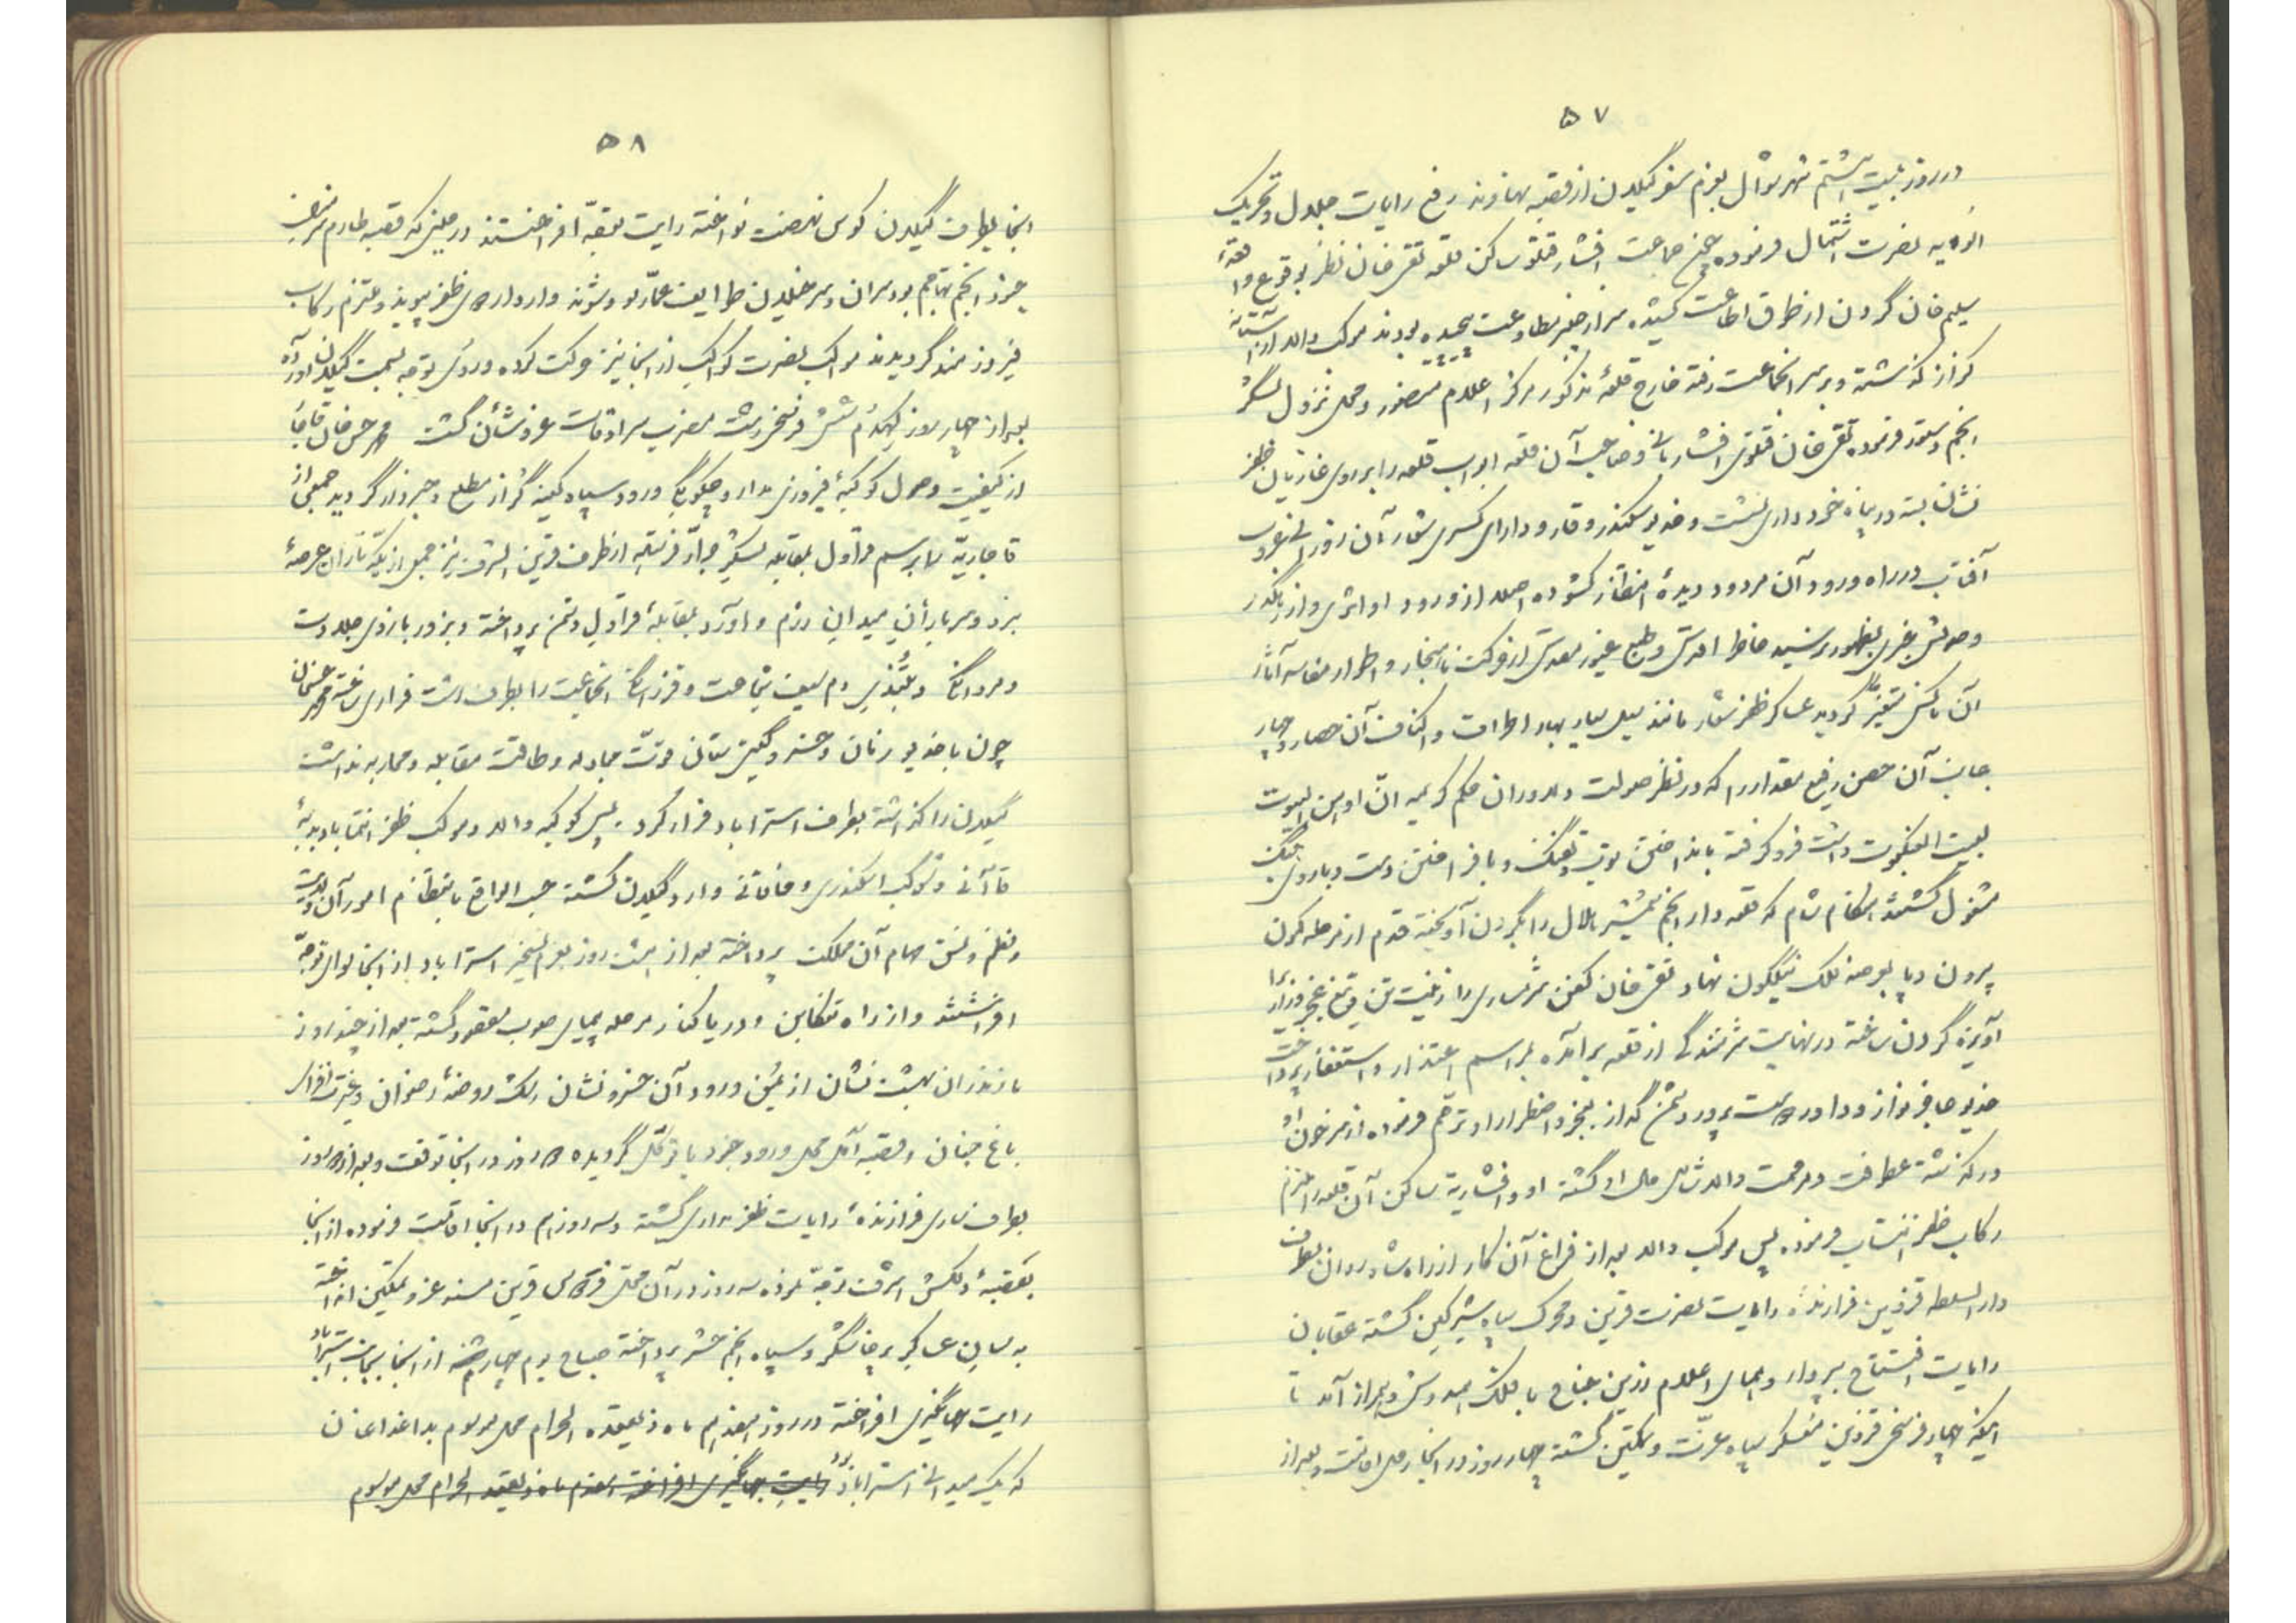 ۵۷
در روز بیست و هشتم شهر شوال بعزم سفر گیلان از قصبه نهاوند رفع رایات جلال و تحریک
الویه نصرت اشتمال فرموده چون جماعت افشار ساکن قلعه تقی خان نظر بوقوع واقعهٔ
سلیم خان گردن از طرق اطاعت کشیده سر از مطاوعت پیچیده بودند موکب والا از
کزاز گذشته و بر سر آنجماعت رفته خارج قلعهٔ مذکور مرکز اعلام منصور و محل نزول لشکر
انجم دستور فرموده تقی خان افشار بانی و صاحب آن قلعه ابواب قلعه را بر روی غازیان ظفر
نشان بسته در پناه خودداری نشست و خدیو سکندر وقار و دارای کسری شعار آن روز الی غروب
آفتاب در راه ورود آن مردود دیدهٔ انتظار گشوده اصلا از ورود او اثری و از
وصولش خبری بظهور نرسید خاطر اقدس و طبع غیور مقدس از حرکت ناهنجار و اطوار آثار
آن ناکس متغیر گردید عساکر ظفر شعار مانند سیل بهار اطراف و اکناف آن حصار و چهار
جانب آن حصن رفیع مقدار را که در نظر صولت دلاوران حکم کریمه ان اوهن البیوت
لبیت العنکبوت داشت فرو گرفته بانداختن توپ و تفنگ و بافراختن دست و بازوی جنگ
مشغول گشتند هنگام شام که قلعه دار انجم شمشیر هلال را بگردن آویخته قدم از مرحله کون
بیرون و پا بعرصه فلک نیلگون نهاد تقی خان کفن شرمساری را زینت تن و تیغ عجز و زاری را
آویزهٔ گردن ساخته در نهایت شرمندگی از قلعه برآمده بمراسم اعتذار و استغفار پرداخت
خدیو چاکر نواز و داور دوست پرور دشمن گداز بعجز و اضطرار او ترحم فرموده از سر خون او
درگذشته عطوفت و مرحمت والا شامل حال او گشته او و افشاریه ساکن آن قلعه را ملتزم
رکاب ظفر انتساب فرموده پس موکب والا بعد از فراغ آن کار از راه ساوه روان بطرف
دارالسلطنه قزوین فرازندهٔ رایات نصرت قرین و محرک سپاه شیر کین گشته عقابان
رایات افتتاح بپرواز و همای اعلام زرین جناح با فلک همدوش و همراز آمد تا
اینکه چهار فرسخی قزوین معسکر سپاه عزت و تمکین گشته چهار روز در آنجا رحل اقامت و بعد از
۵۸
آنجا بطرف گیلان کوس نهضت نواخته رایت توجه افراختند در حینی که قصبه طارم مضرب
جنود انجم تهاجم بود سران و سر خیلان طوایف عمارلو و شوند وارد اردوی ظفر پیوند و ملتزم رکاب
فیروزمند گردیدند موکب نصرت کواکب از آنجا نیز حرکت کرده و روی توجه بسمت گیلان آورده
بعد از چهار روز کهدم شش فرسخی رشت مضرب سرادقات عز و شأن گشت محمد حسن خان قاجار
از کیفیت وصول کوکبهٔ فیروزی مدار و چگونگی ورود سپاه کینه گزار مطلع و خبردار گردید جمعی از
قاجاریه را برسم قراول بمقابله لشکر جرار فرستاد از طرف قرین الشرف نیز جمعی از یکه تازان عرصهٔ
نبرد و سربازان میدان رزم و آورد بمقابلهٔ قراول دشمن پرداخته و بزور بازوی جلادت
و مردانگی و بتندی دم سیف شجاعت و فرزانگی آنجماعت را بطرف رشت فراری ساخته محمد حسنخان
چون با خدیو زمان و خسرو گیتی ستان قوت مجادله و طاقت مقابله و محاربه نداشت
گیلان را گذاشته بطرف استراباد فرار کرد پس کوکبه والا و موکب ظفر انتما با دبدبهٔ
قاآنی و شوکت اسکندری و خاقانی وارد گیلان گشته حسب الواقع بانتظام امور آن ولایت
و نظم و نسق مهام آن مملکت پرداخته بعد از هشت روز بعزم تسخیر استراباد از آنجا لوای توجه
افراشتند و از راه تنکابن و دریا کنار مرحله پیمای صوب مقصود گشته بعد از چند روز
مازندران بهشت نشان از یمن ورود آن خسرو نشان رشک روضهٔ رضوان و غیرت افزای
باغ جنان و قصبه آمل محل ورود جنود با توکل گردیده ده روز در آنجا توقف و بعد از ده روز
بطرف ساری فرازندهٔ رایات ظفر مداری گشته و سه روز هم در آنجا اقامت فرموده از آنجا
بقصبهٔ دلکش اشرف توجه نموده سه روز در آن محل فردوس قرین مسند عز و تمکین انداخته
به سان عساکر پرخاشگر و سپاه انجم حشر پرداخته صباح یوم چهارشنبه از آنجا بجانب استراباد
رایت جهانگیری افراخته در روز هفدهم ماه ذیقعده الحرام محل موسوم بداغداغان
که یک میدانی استراباد بود رایت جهانگیری افراخته هفدهم ماه ذیقعده الحرام محل موسوم